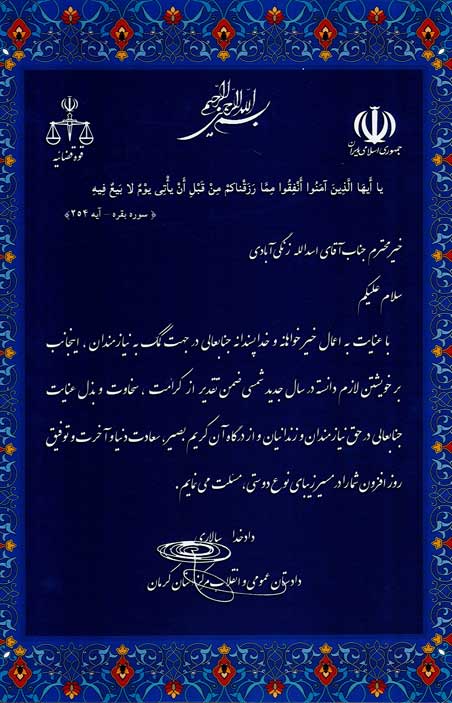 بسم الله الرحمن الرحیم
جمهوری اسلامی ایران
قوه قضائیه
یا أیها الَّذینَ آمَنُوا أَنْفِقُوا مِمَّا رَزَقْناکمْ مِنْ قَبْلِ أَنْ یأْتِی یوْمٌ لا بَیعٌ فِیهِ
﴿ سوره بقره – آیه ۲۵۴ ﴾
خیر محترم جناب آقای اسدالله زنگی آبادی
سلام علیکم
با عنایت به اعمال خیرخواهانه و خداپسندانه جنابعالی در جهت کمک به نیازمندان ، اینجانب
بر خویشتن لازم دانسته در سال جدید شمسی ضمن تقدیر از کرامت ، سخاوت و بذل عنایت
جنابعالی در حق نیازمندان و زندانیان و از درگاه آن کریم بصیر، سعادت دنیا و آخرت و توفیق
روز افزون شما را در مسیر زیبای نوع دوستی، مسئلت می نمایم .
دادخدا سالاری
دادستان عمومی و انقلاب مرکز استان کرمان